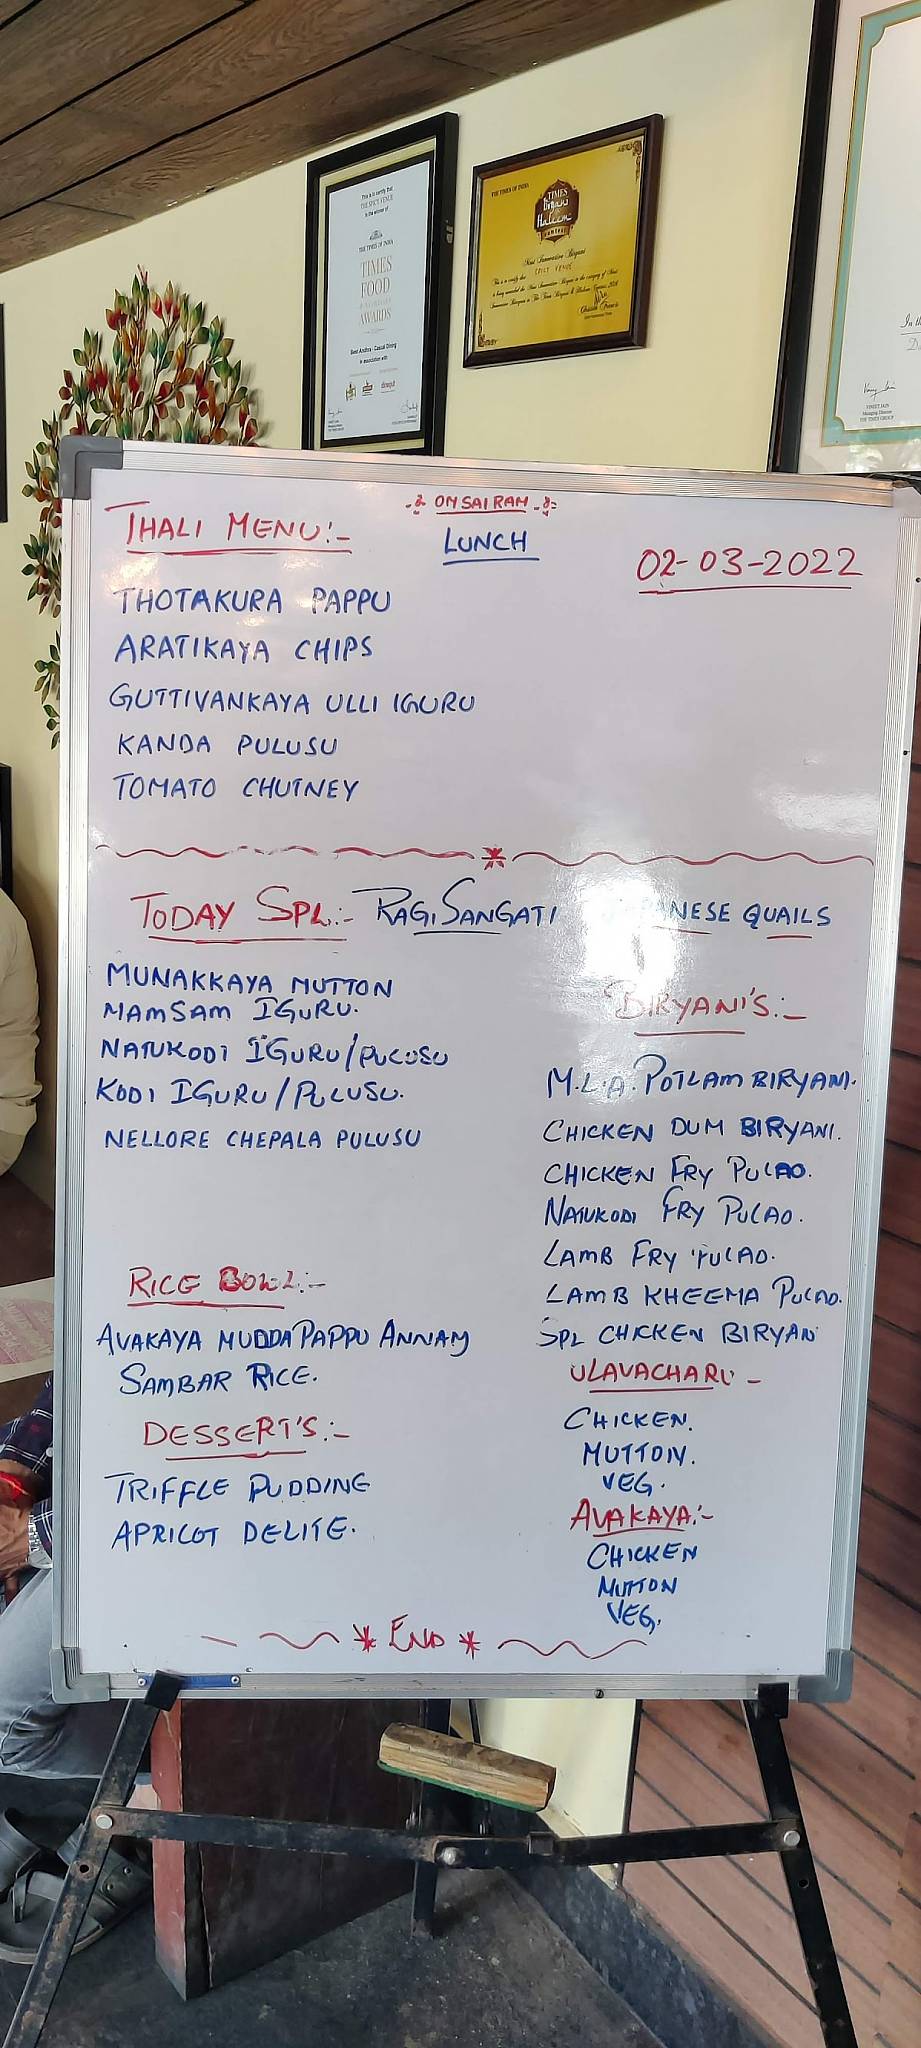 This is to certify that
THE SPICY VENUE
is the winner of
THE TIMES OF INDIA
TIMES
FOOD
AWARDS
Best Andhra - Casual Dining
in association with
THE TIMES OF INDIA
TIMES
Biryani
&
Haleem
contest
Most Innovative Biryani
This is to certify that SPICY VENUE
VINEET JAIN
Managing Director
THE TIMES GROUP
OM SAI RAM
THALI MENU:-
LUNCH
02-03-2022
THOTAKURA PAPPU
ARATIKAYA CHIPS
GUTTIVANKAYA ULLI IGURU
KANDA PULUSU
TOMATO CHUTNEY
TODAY SPL:- RAGI SANGATI QUAILS
MUNAKKAYA MUTTON
MAMSAM IGURU.
NATUKODI IGURU/PULUSU
KODI IGURU/PULUSU.
NELLORE CHEPALA PULUSU
RICE BOWL:-
AVAKAYA MUDDA PAPPU ANNAM
SAMBAR RICE.
DESSERT'S:-
TRIFFLE PUDDING
APRICOT DELITE.
BIRYANI'S:-
M.L.A. POTLAM BIRYANI.
CHICKEN DUM BIRYANI.
CHICKEN FRY PULAO.
NATUKODI FRY PULAO.
LAMB FRY PULAO.
LAMB KHEEMA PULAO.
SPL CHICKEN BIRYANI
ULAVACHARU -
CHICKEN.
MUTTON.
VEG.
AVAKAYA:-
CHICKEN
MUTTON
VEG.
* END *